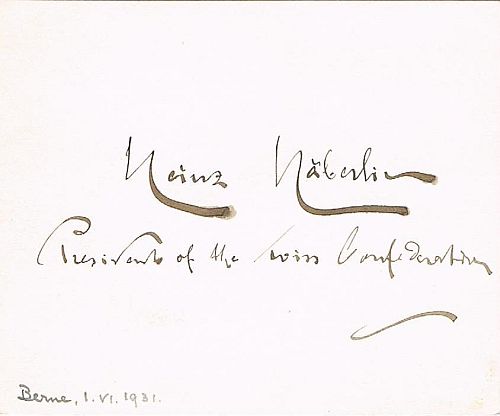 Heinz Häberlin
President of the Swiss Confederation
Berne, 1.VI.1931.